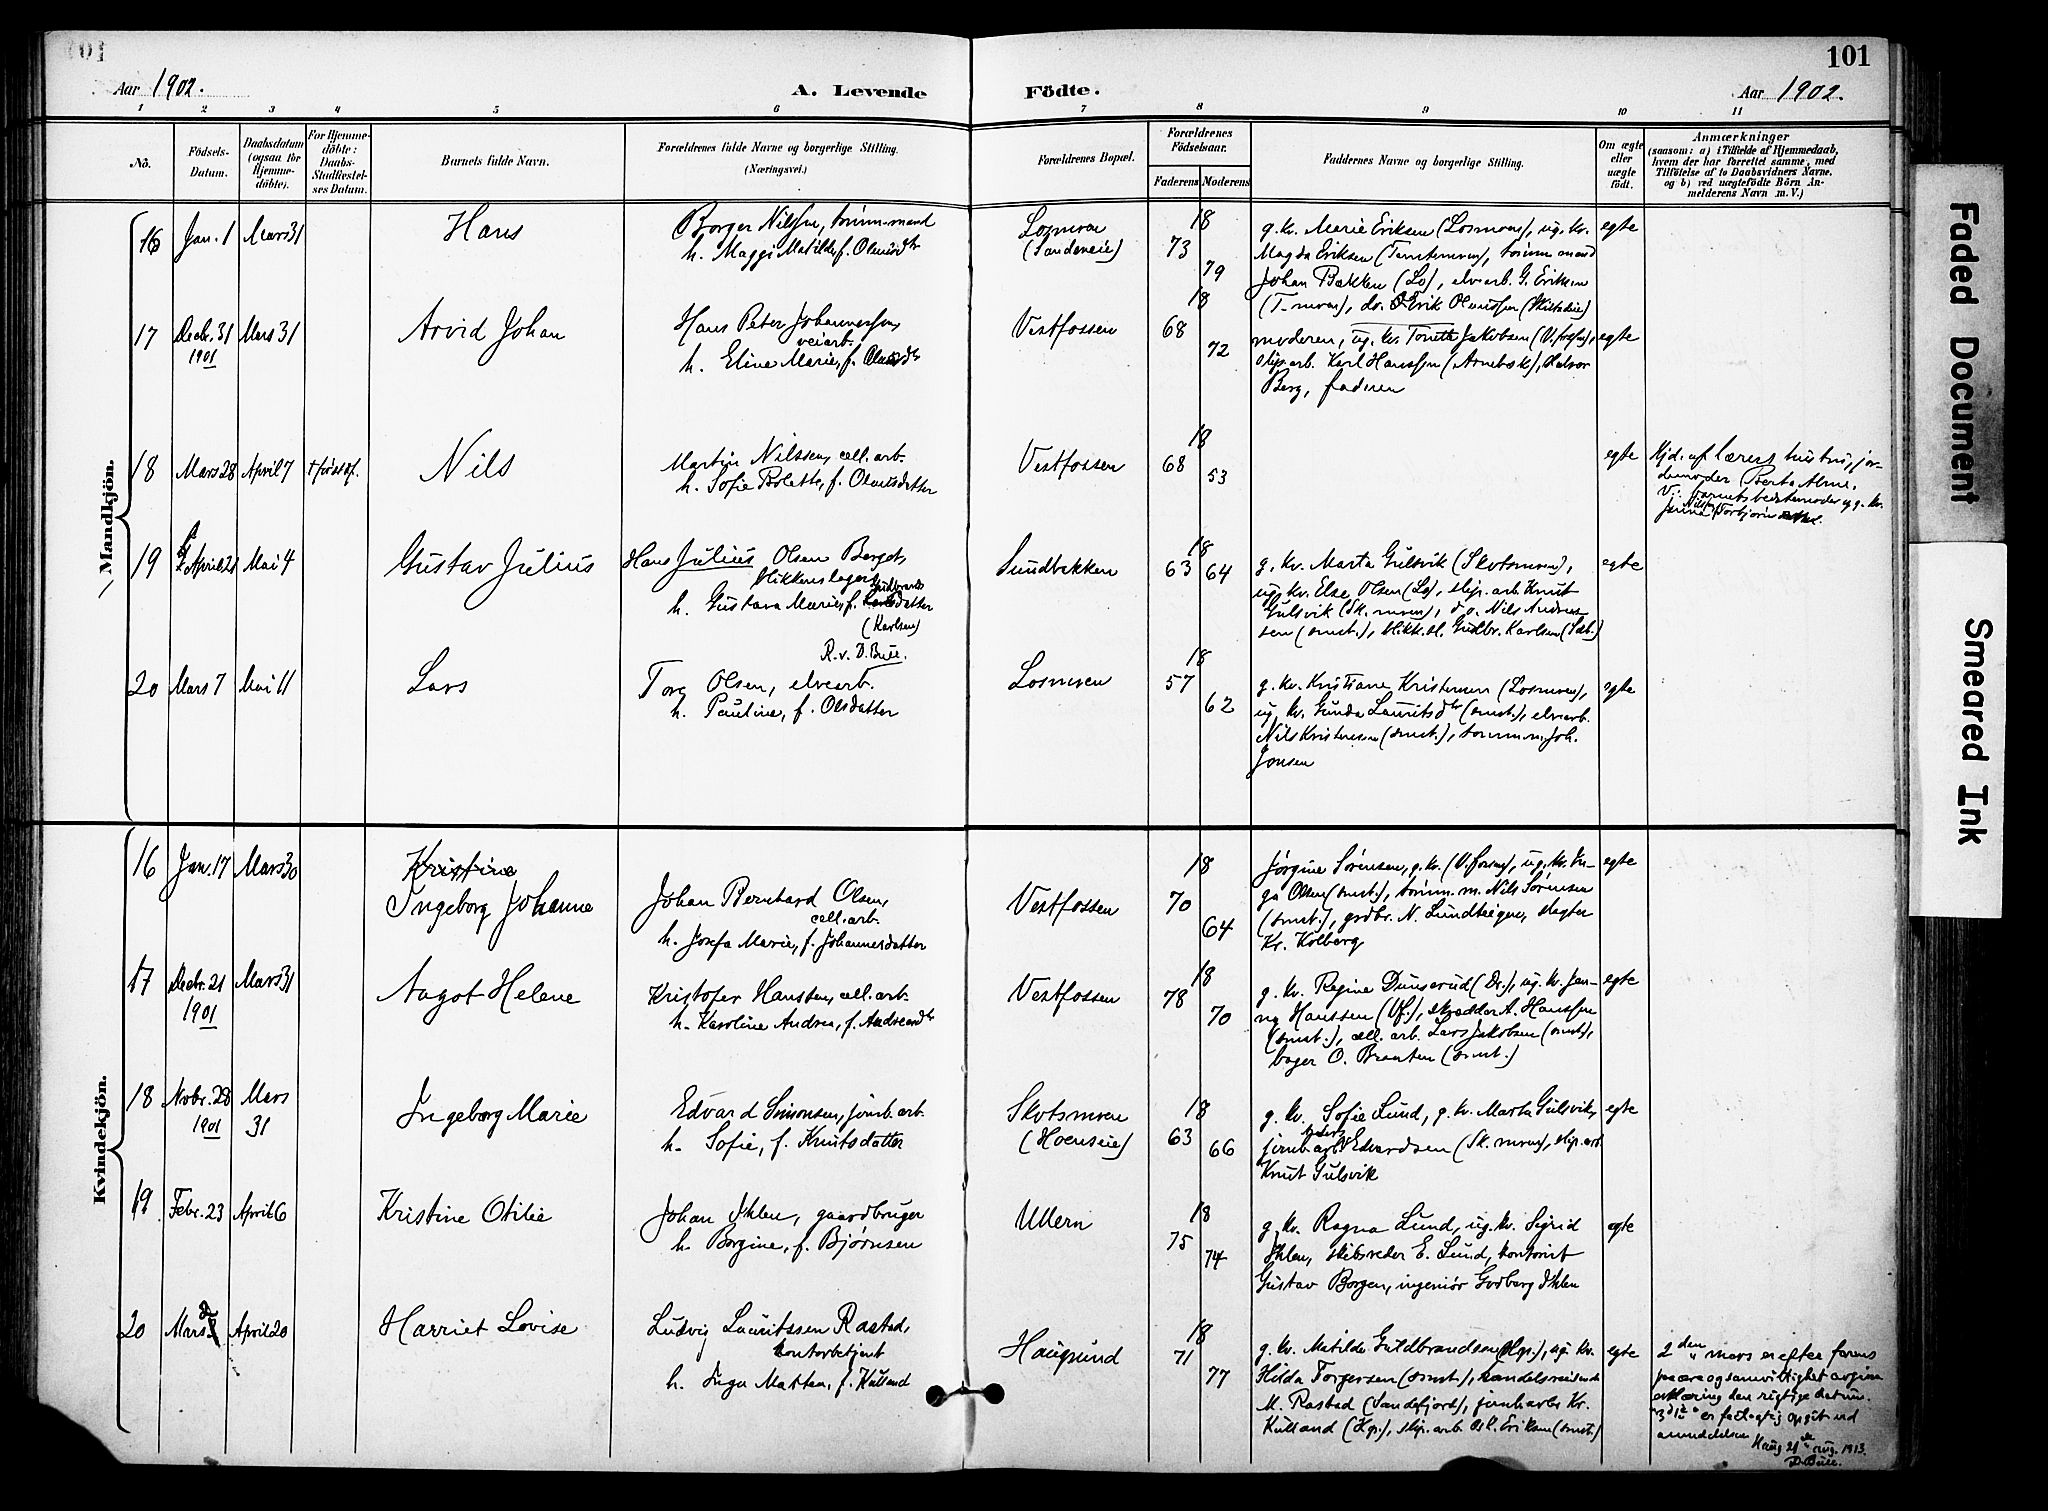 101
101
Aar 1902.
A. Levende
Födte.
Aar 1902.
1 2 3 4 5 6 7 8 9 10 11
No.
Födsels-
Datum.
Daabsdatum
(ogsaa for
Hjemme-
döbte).
For Hjemme-
döbte:
Daabs-
Stadfæstel-
ses Datum.
Barnets fulde Navn.
Forældrenes fulde Navne og borgerlige Stilling.
(Næringsvei.)
Forældrenes Bopæl.
Forældrenes
Födselsaar.
Faderens Moderens
Faddernes Navne og borgerlige Stilling.
Om ægte
eller
uægte
födt.
Anmærkninger
(saasom: a) i Tilfælde af Hjemmedaab,
hvem der har forrettet samme, med
Tilföielse af to Daabsvidners Navne,
og b) ved uægtefödte Börn An-
melderens Navn m. V.)
Mandkjön.
16 Jan. 1 Mars 31
Hans
Borger Nilssen, tømm.mand
h. Maggi Matilde, f. Olausdtr
Losmoen
(Sandsneie)
18
73
79
g. kv. Marie Eriksen (Losmoen), ug. kv.
Magda Eriksen (Temtemoen), tømm.mand
Johan Bakken (Lo), elvearb. G. Eriksen
(T-moen), do. Erik Olaussen
egte
17 Decbr. 31 Mars 31
1901
Arvid Johan
Hans Peter Johannessen,
veiarb.
h. Eline Marie, f. Olausdtr
Vestfossen
18
68
72
moderen, ug. kv. Jakobsen (V.fossen),
slip.arb. Karl Hanssen (Arnebæk), Halvor
Berg, faderen
egte
18 Mars 28 April 7 † før st.f.
Nils
Martin Nilssen, cell. arb.
h. Sofie Bolette, f. Olausdatter
Vestfossen
18
68
53
egte
Hjd. af lærers hustru, jor-
demoder Berta Alme.
V.: barnets bedstemoder og g. kv.
Nilsen
19 April 21 Mai 4
Gustav Julius
Hans Julius Olsen Berget,
blikkenslager
Gudbrands
h. Gustava Marie, f. Karlsdatter
(Karlsen)
R. v. D. Bull.
Sundbakken
18
63 64
g. kv. Marta Gulsvik (Skotsmoen),
ug. kv. Else Olsen (Lo), slip. arb. Knut
Gulsvik (Sk. moen), d.o. Nils Andrea-
sen (smst.), blikk.sl. Gudbr. Karlsen (Sdb.)
egte
20 Mars 7 Mai 11
Lars
Torg Olsen, elvearb.
h. Pauline, f. Olsdatter
Losmoen
18
57
62
g. kv. Kristiane Kristensen (Losmoen),
ug. kv. Gunda Lauritsdtr (smst.), elvearb.
Nils Kristensen (smst.), tømmerm. Joh.
Jonsen
egte
Kvindekjön.
16 Jan. 17 Mars 30
Kristine
Ingeborg Johanne
Johan Bernhard Olsen,
cell. arb.
h. Josefa Marie, f. Johannesdatter
Vestfossen
18
70
64
Jørgine Sørensen, g. kv. (V.fossen), ug. kv. In-
ga Olsen (smst.), tømm. m. Nils Sørensen
(smst.), grdbr. N. Lundteigen, slagter
Kr. Kolberg
egte
17 Decbr. 21 Mars 31
1901
Aagot Helene
Kristofer Hanssen, cell. arb.
h. Karoline Andrea, f. Andreasdtr
Vestfossen
18
78
70
g. kv. Regine Dunserud (Dr.), ug. kv. Jen-
ny Hanssen (Vf.), skrædder A. Hanssen
(smst.), cell. arb. Lars Jakobsen (smst.),
bager O. Braaten (smst.)
egte
18 Novbr. 28 Mars
1901 31
Ingeborg Marie
Edvard Simonsen, jernb. arb.
h. Sofie, f. Knutsdatter
Skotsmoen
(Hoenseie)
18
63
66
g. kv. Sofie Lund, g. kv. Marta Gulsvik,
jernb.arb. Edvardsen (Sk. moen), slip. arb.
Knut Gulsvik
egte
19 Febr. 23 April 6
Kristine Otilie
Johan Ihlen, gaardbruger
h. Borgine, f. Bjørnsen
Ullern
18
75
74
g. kv. Ragna Lund, ug. kv. Sigrid
Ihlen, skibsreder E. Lund, kontorist
Gustav Borgen, ingeniør Godberg Ihlen
egte
20 Mars 2 April 20
Harriet Lovise
Ludvig Lauritssen Rastad,
kontorbetjent
h. Inga Matea, f. Kulland
Haugsund
18
71
77
g. kv. Matilde Guldbrandsen (Hgs.), ug. kv.
Hilda Torgersen (smst.), handelsreisende
M. Rastad (Sandefjord), jernb.arb. Kr.
Kulland (Hgs.), slip. arb. Osk. Eriksen (smst.)
egte
2den mars er efter farens
paa ære og samvittighet avgivne
erklæring den rigtige datum.
"3die" er feilagtig opgit ved
anmeldelsen
Haug 21de aug. 1913.
D. Bull.
Faded Document
Smeared Ink